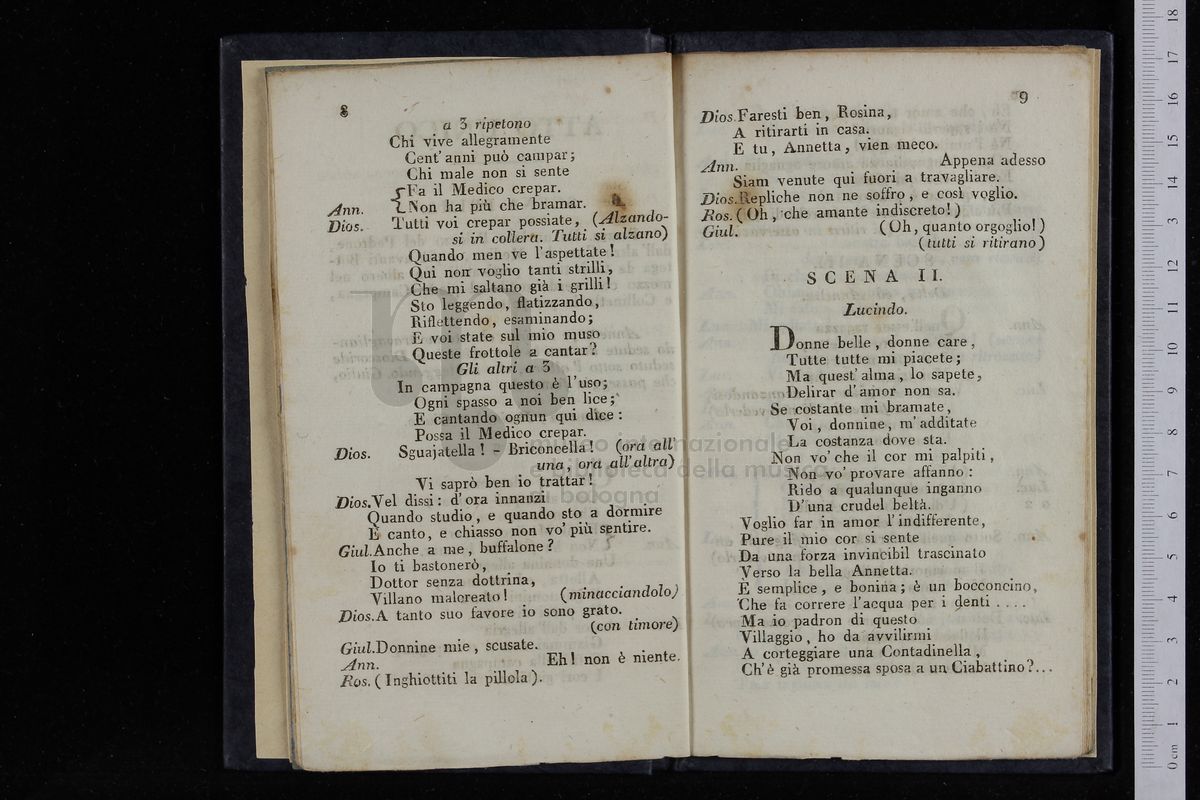 8
a 3 ripetono
Chi vive allegramente
Cent' anni può campar;
Chi male non si sente
Fa il Medico crepar.
Ann. Non ha più che bramar.
Dios. Tutti voi crepar possiate, (Alzando-
si in collera. Tutti si alzano)
Quando men ve l'aspettate!
Qui non voglio tanti strilli,
Che mi saltano già i grilli!
Sto leggendo, flatizzando,
Riflettendo, esaminando;
E voi state sul mio muso
Queste frottole a cantar?
Gli altri a 3
In campagna questo è l'uso;
Ogni spasso a noi ben lice;
E cantando ognun qui dice:
Possa il Medico crepar.
Dios. Sguajatella! - Briconcella! (ora all'
una, ora all'altra)
Vi saprò ben io trattar!
Dios. Vel dissi: d'ora innanzi
Quando studio, e quando sto a dormire
E canto, e chiasso non vo' più sentire.
Giul. Anche a me, buffalone?
Io ti bastonerò,
Dottor senza dottrina,
Villano malcreato! (minacciandolo)
Dios. A tanto suo favore io sono grato.
(con timore)
Giul. Donnine mie, scusate.
Ann. Eh! non è niente.
Ros. (Inghiottiti la pillola).
9
Dios. Faresti ben, Rosina,
A ritirarti in casa.
E tu, Annetta, vien meco.
Ann. Appena adesso
Siam venute qui fuori a travagliare.
Dios. Repliche non ne soffro, e così voglio.
Ros. (Oh, che amante indiscreto!)
Giul. (Oh, quanto orgoglio!)
(tutti si ritirano)
SCENA II.
Lucindo.
Donne belle, donne care,
Tutte tutte mi piacete;
Ma quest' alma, lo sapete,
Delirar d'amor non sa.
Se costante mi bramate,
Voi, donnine, m'additate
La costanza dove sta.
Non vo' che il cor mi palpiti,
Non vo' provare affanno:
Rido a qualunque inganno
D'una crudel beltà.
Voglio far in amor l'indifferente,
Pure il mio cor si sente
Da una forza invincibil trascinato
Verso la bella Annetta.
E semplice, e bonina; è un bocconcino,
Che fa correre l'acqua per i denti ....
Ma io padron di questo
Villaggio, ho da avvilirmi
A corteggiare una Contadinella,
Ch'è già promessa sposa a un Ciabattino?...
museo internazionale
e biblioteca della musica
di bologna
0 cm 1 2 3 4 5 6 7 8 9 10 11 12 13 14 15 16 17 18